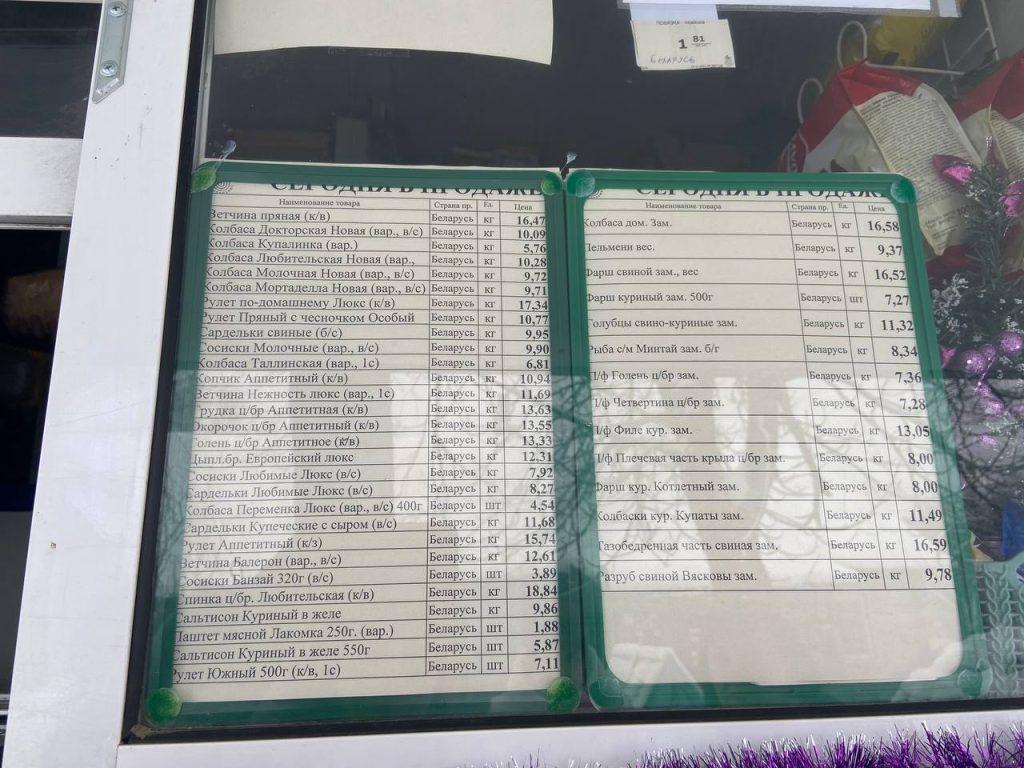 1 81
БЕЛАРУСЬ
СЕГОДНЯ В ПРОДАЖЕ
Наименование товара Страна пр. Ед. Цена
Ветчина пряная (к/в) Беларусь кг 16,47
Колбаса Докторская Новая (вар., в/с) Беларусь кг 10,09
Колбаса Купалинка (вар.) Беларусь кг 5,76
Колбаса Любительская Новая (вар., Беларусь кг 10,28
Колбаса Молочная Новая (вар., в/с) Беларусь кг 9,72
Колбаса Мортаделла Новая (вар., в/с) Беларусь кг 9,71
Рулет по-домашнему Люкс (к/в) Беларусь кг 17,34
Рулет Пряный с чесночком Особый Беларусь кг 10,77
Сардельки свиные (б/с) Беларусь кг 9,95
Сосиски Молочные (вар., в/с) Беларусь кг 9,90
Колбаса Таллинская (вар., 1с) Беларусь кг 6,81
Копчик Аппетитный (к/в) Беларусь кг 10,94
Ветчина Нежность люкс (вар., 1с) Беларусь кг 11,69
Грудка ц/бр Аппетитная (к/в) Беларусь кг 13,63
Окорочок ц/бр Аппетитный (к/в) Беларусь кг 13,55
Голень ц/бр Аппетитное (к/в) Беларусь кг 13,33
Цыпл.бр. Европейский люкс Беларусь кг 12,31
Сосиски Любимые Люкс (в/с) Беларусь кг 7,92
Сардельки Любимые Люкс (в/с) Беларусь кг 8,27
Колбаса Переменка Люкс (вар., в/с) 400г Беларусь шт 4,54
Сардельки Купеческие с сыром (в/с) Беларусь кг 11,68
Рулет Аппетитный (к/з) Беларусь кг 15,74
Ветчина Балерон (вар., в/с) Беларусь кг 12,61
Сосиски Банзай 320г (в/с) Беларусь шт 3,89
Спинка ц/бр. Любительская (к/в) Беларусь кг 18,84
Сальтисон Куриный в желе Беларусь кг 9,86
Паштет мясной Лакомка 250г. (вар.) Беларусь шт 1,88
Сальтисон Куриный в желе 550г Беларусь шт 5,87
Рулет Южный 500г (к/в, 1с) Беларусь шт 7,11
СЕГОДНЯ В ПРОДАЖЕ
Наименование товара Страна пр. Ед. Цена
Колбаса дом. Зам. Беларусь кг 16,58
Пельмени вес. Беларусь кг 9,37
Фарш свиной зам., вес Беларусь кг 16,52
Фарш куриный зам. 500г Беларусь шт 7,27
Голубцы свино-куриные зам. Беларусь кг 11,32
Рыба с/м Минтай зам. б/г Беларусь кг 8,34
П/ф Голень ц/бр зам. Беларусь кг 7,36
П/ф Четвертина ц/бр зам. Беларусь кг 7,28
П/ф Филе кур. зам. Беларусь кг 13,05
П/ф Плечевая часть крыла ц/бр зам. Беларусь кг 8,00
Фарш кур. Котлетный зам. Беларусь кг 8,00
Колбаски кур. Купаты зам. Беларусь кг 11,49
Тазобедренная часть свиная зам. Беларусь кг 16,59
Разруб свиной Вясковы зам. Беларусь кг 9,78